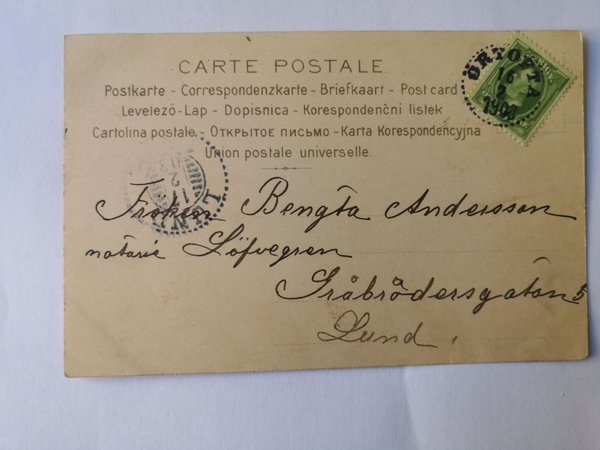 CARTE POSTALE.
Postkarte - Correspondenzkarte - Briefkaart - Post card
Levelező-Lap - Dopisnica - Korespondenční listek
Cartolina postale - Открытое письмо - Karta Korespondencyjna
Union postale universelle.
ÖRTOFTA
16
2
LUND
17
2
Fröken Bengta Andersson
notarie Löfvegren
Gråbrödersgatan 5
Lund.